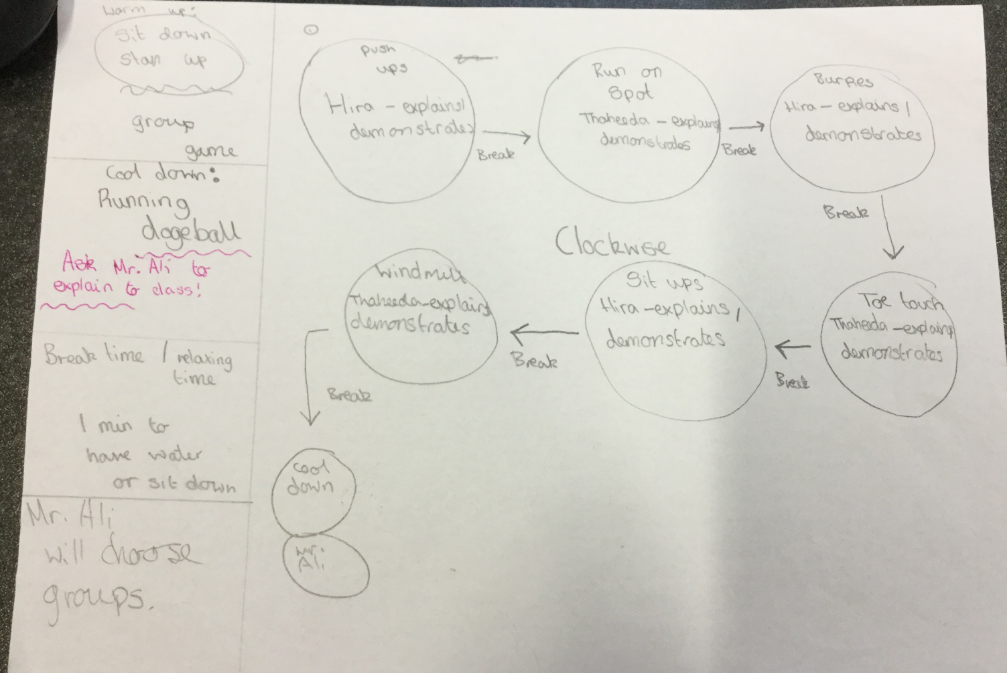 warm up:
Sit down
Stan up
group
game
Cool down:
Running
dogeball
Ask Mr. Ali to
explain to class!
Break time / relaxing
time
1 min to
have water
or sit down
Mr. Ali
will choose
groups.
push
ups
Hira - explains/
demonstrates
Break
Run on
Spot
Thaheeda - explains
demonstrates
Break
Burpies
Hira - explains /
demonstrates
Break
Toe touch
Thaheda - explains
demonstrates
Break
Clockwise
Sit ups
Hira - explains /
demonstrates
Break
Windmill
Thaheeda - explains
demonstrates
Break
Cool
down
Mr.
Ali